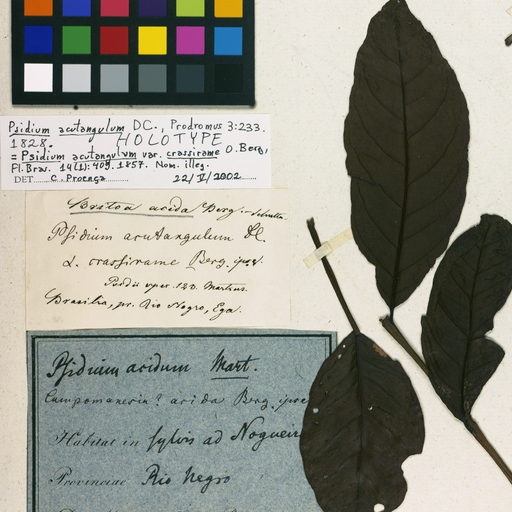 Psidium acutangulum DC., Prodromus 3:233.
1828. HOLOTYPE
= Psidium acutangulum var. crassirame O. Berg,
Fl. Bras. 14(1):409. 1857. Nom. illeg.
DET. C. Proença 22/V/2002
Britoa acida Berg.
Psidium acutangulum
α. crassirame Berg.
Martius.
Brasilia, pr. Rio Negro, Ega.
Psidium acidum Mart.
Campomanesia? acida Berg.
Habitat in sylvis ad Nogueir
Provinciae Rio Negro